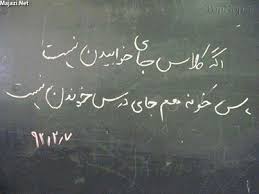 Majazi.Net
اگه کلاس جای خوابیدن نیست!
پس خونه هم جای درس خوندن نیست
۹۲/۲/۷